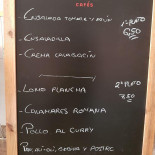 CAFÉS
- ENSALADA TOMATE Y ATÚN
1º PLATO
6,50
- ENSALADILLA
- CREMA CALABACÍN
- LOMO PLANCHA
2º PLATO
7,50
- CALAMARES ROMANA
- POLLO AL CURRY
BEBIDA Y POSTRE